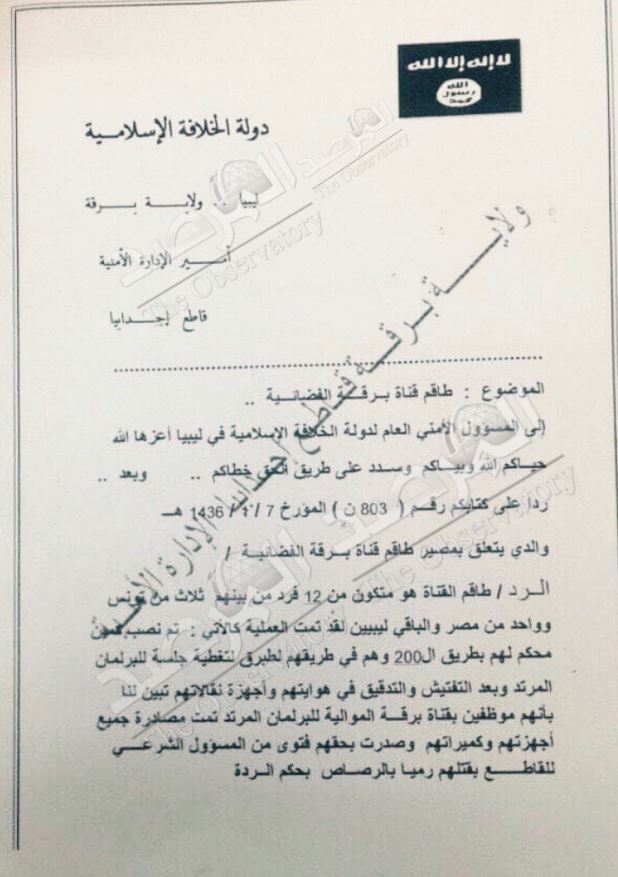 لا إله إلا الله
الله
رسول
محمد
دولة الخلافة الإسلامية
ليبيا .. ولاية برقة
أمير الإدارة الأمنية
قاطع إجدابيا
الموضوع : طاقم قناة برقة الفضائية ..
إلى المسؤول الأمني العام لدولة الخلافة الإسلامية في ليبيا أعزها الله
حياكم الله وبياكم وسدد على طريق الحق خطاكم .. وبعد ..
رداً على كتابكم رقم ( 803 ن ) المؤرخ 7 / 1 / 1436 هـ
والدي يتعلق بمصير طاقم قناة برقة الفضائية /
الرد / طاقم القناة هو متكون من 12 فرد من بينهم ثلاث من تونس
وواحد من مصر والباقي ليبيين لقد تمت العملية كالآتي : تم نصب كمين
محكم لهم بطريق ال200 وهم في طريقهم لطبرق لتغطية جلسة للبرلمان
المرتد وبعد التفتيش والتدقيق في هوايتهم وأجهزة نقالاتهم تبين لنا
بأنهم موظفين بقناة برقة الموالية للبرلمان المرتد تمت مصادرة جميع
أجهزتهم وكميراتهم وصدرت بحقهم فتوى من المسؤول الشرعي
للقاطع بقتلهم رميا بالرصاص بحكم الردة
ولاية برقة قاطع إجدابيا الإدارة
المرصد
The Observatory
المرصد
The Observatory
المرصد
The Observatory